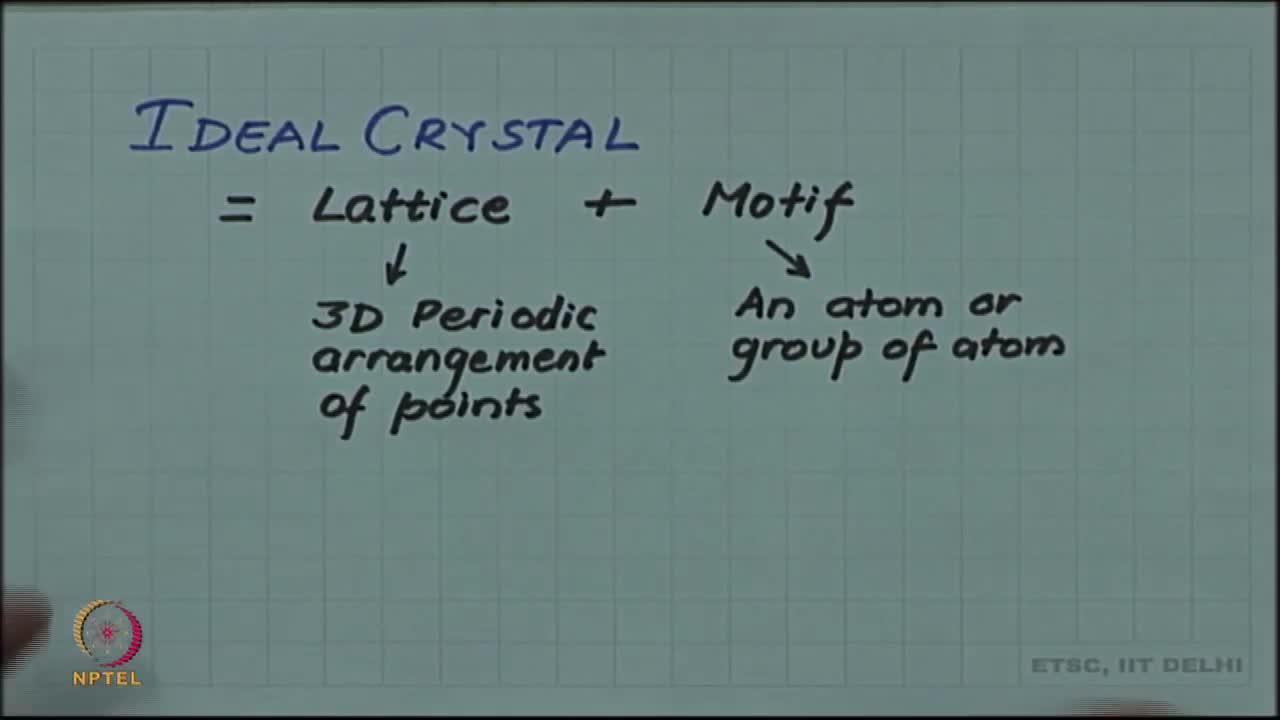 IDEAL CRYSTAL
= Lattice + Motif
3D Periodic
arrangement
of points
An atom or
group of atom
NPTEL
ETSC, IIT DELHI